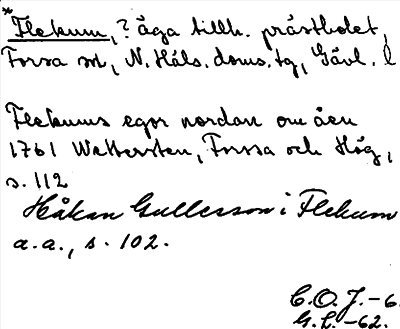 *Flekum, ? äga tillh. prästbolet,
Forsa sn, N. Häls. doms. tg, Gävl. l
Flekums egor nordan om åen
1761 Wettersten, Forssa och Hög,
s. 112
Håkan Gullersson i Flekum
a.a., s. 102.
C.O.J.-6.
G.L.-62.